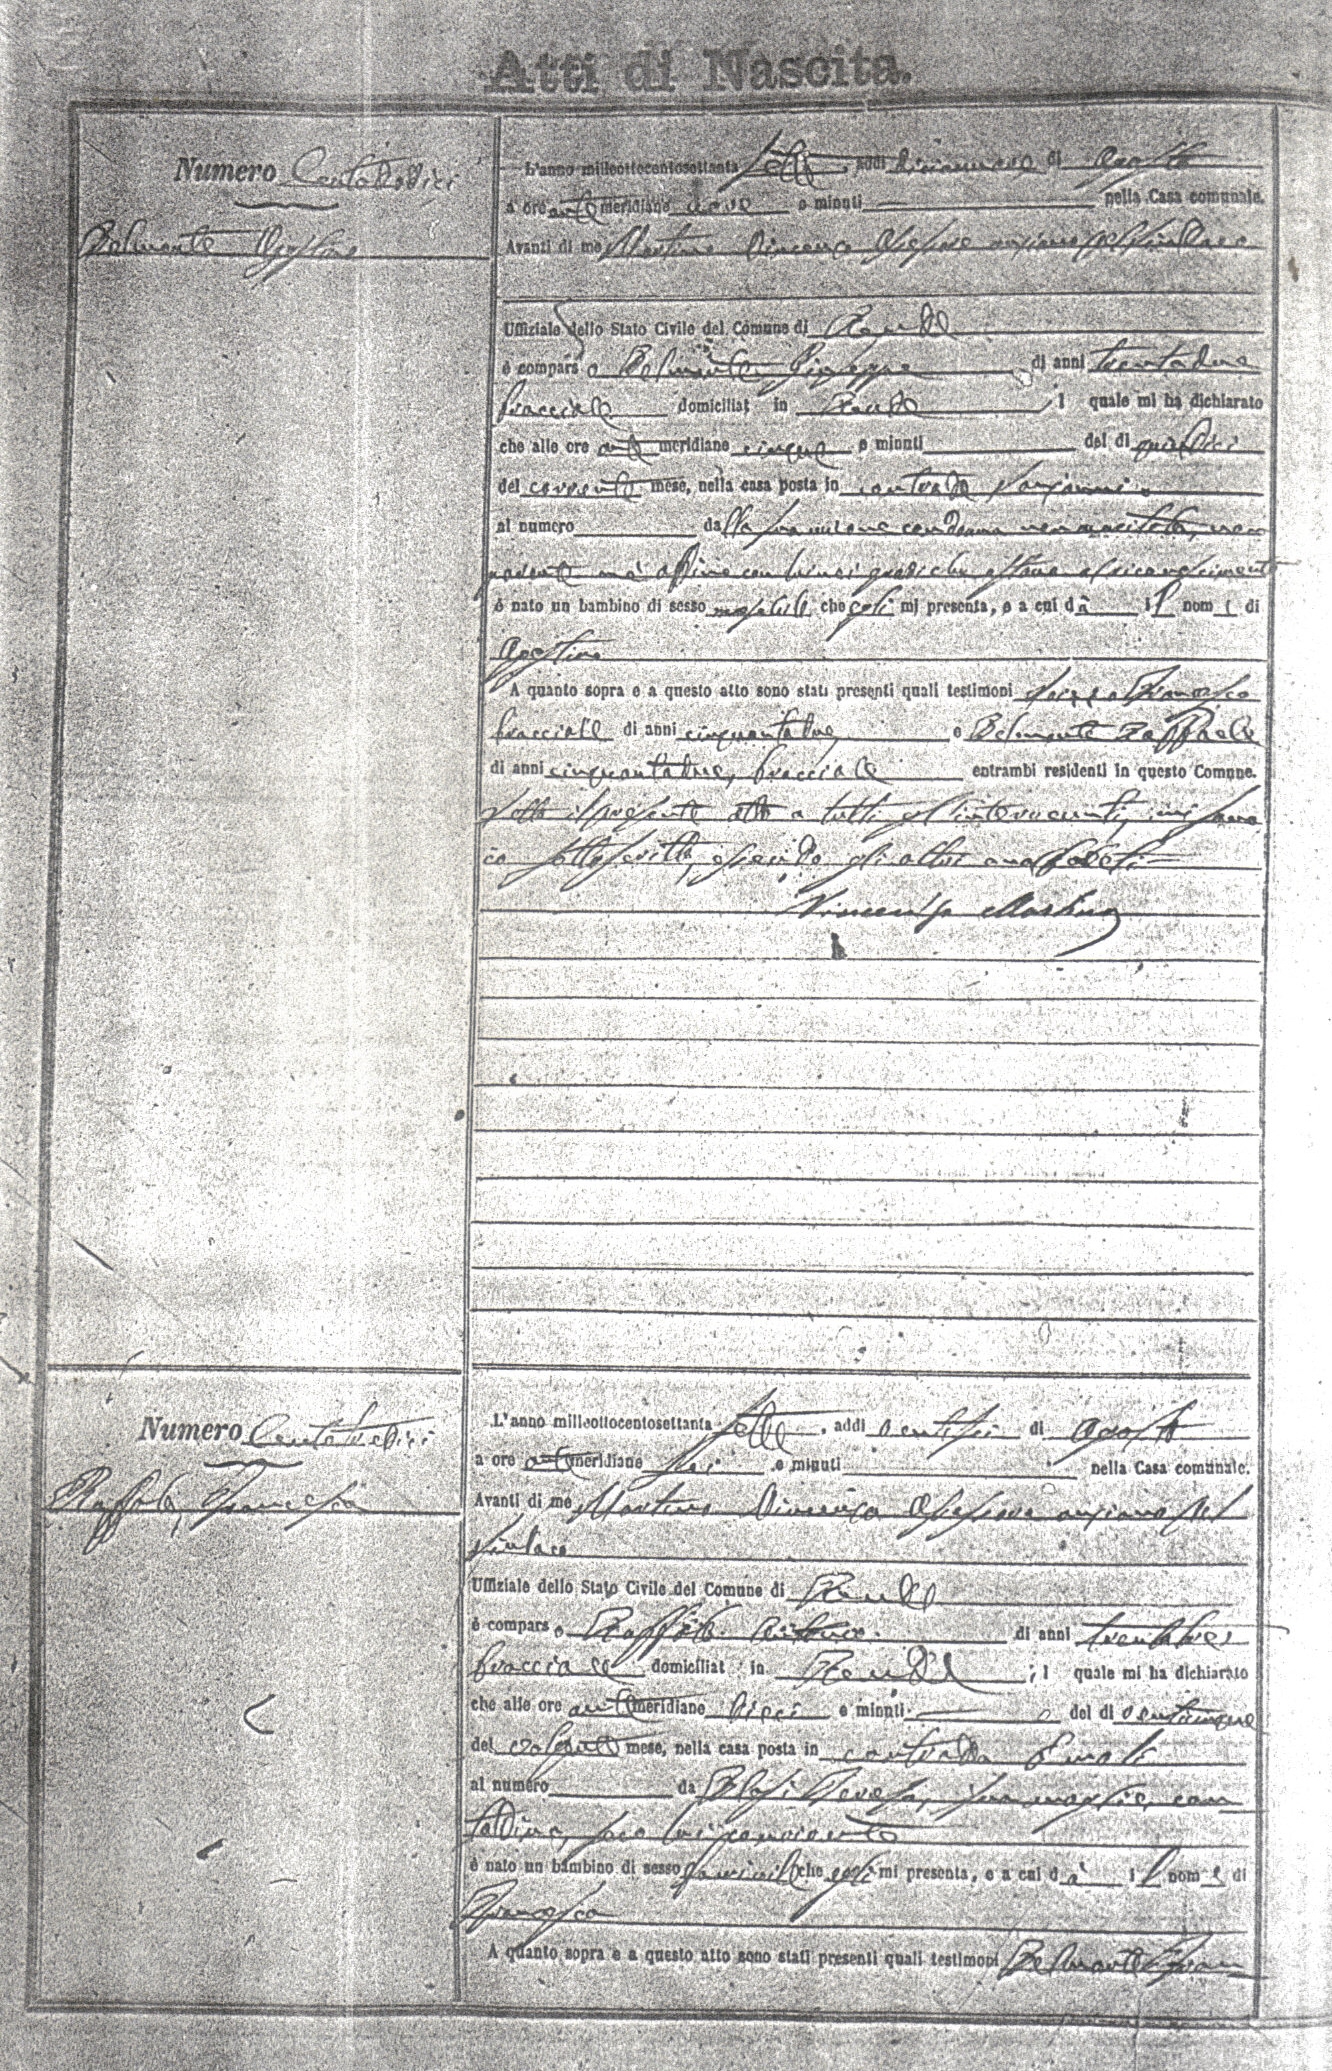 Atti di Nascita.
Numero Centododici
Belmonte Agostino
L'anno milleottocentosettanta sette, addi diciannove di Agosto
a ore ante meridiane nove e minuti nella Casa comunale.
Avanti di me Martino Vincenzo Assessore anziano pel Sindaco
Uffiziale dello Stato Civile del Comune di Rende
è compars o Belmonte Giuseppe di anni trentadue
bracciale domiciliat in Rende ; i quale mi ha dichiarato
che alle ore ant meridiane cinque e minuti del di quindici
del corrente mese, nella casa posta in contrada
al numero dalla sua unione con donna non maritata, non
parente nè affine con lui nei gradi che ostano al riconoscimento
è nato un bambino di sesso maschile che egli mi presenta, e a cui dà il nome di
Agostino
A quanto sopra e a questo atto sono stati presenti quali testimoni Francesco
bracciale di anni cinquantadue e Belmonte Raffaele
di anni cinquantadue, bracciale entrambi residenti in questo Comune.
Letto il presente atto a tutti gl'intervenuti, mi sono
io sottoscritto, essendo gli altri analfabeti
Vincenzo Martino
Numero Centotredici
Francesca
L'anno milleottocentosettanta sette, addi ventisei di Agosto
a ore ante meridiane sei e minuti nella Casa comunale.
Avanti di me Martino Vincenzo Assessore anziano pel
Sindaco
Uffiziale dello Stato Civile del Comune di Rende
è compars o di anni trentatre
bracciale domiciliat in Rende ; i quale mi ha dichiarato
che alle ore ant meridiane dieci e minuti del di venticinque
del mese, nella casa posta in contrada
al numero da Blasi Teresa, sua moglie, con
tadina, seco lui convivente
è nato un bambino di sesso che egli mi presenta, e a cui dà il nome di
Francesca
A quanto sopra e a questo atto sono stati presenti quali testimoni Belmonte Fran